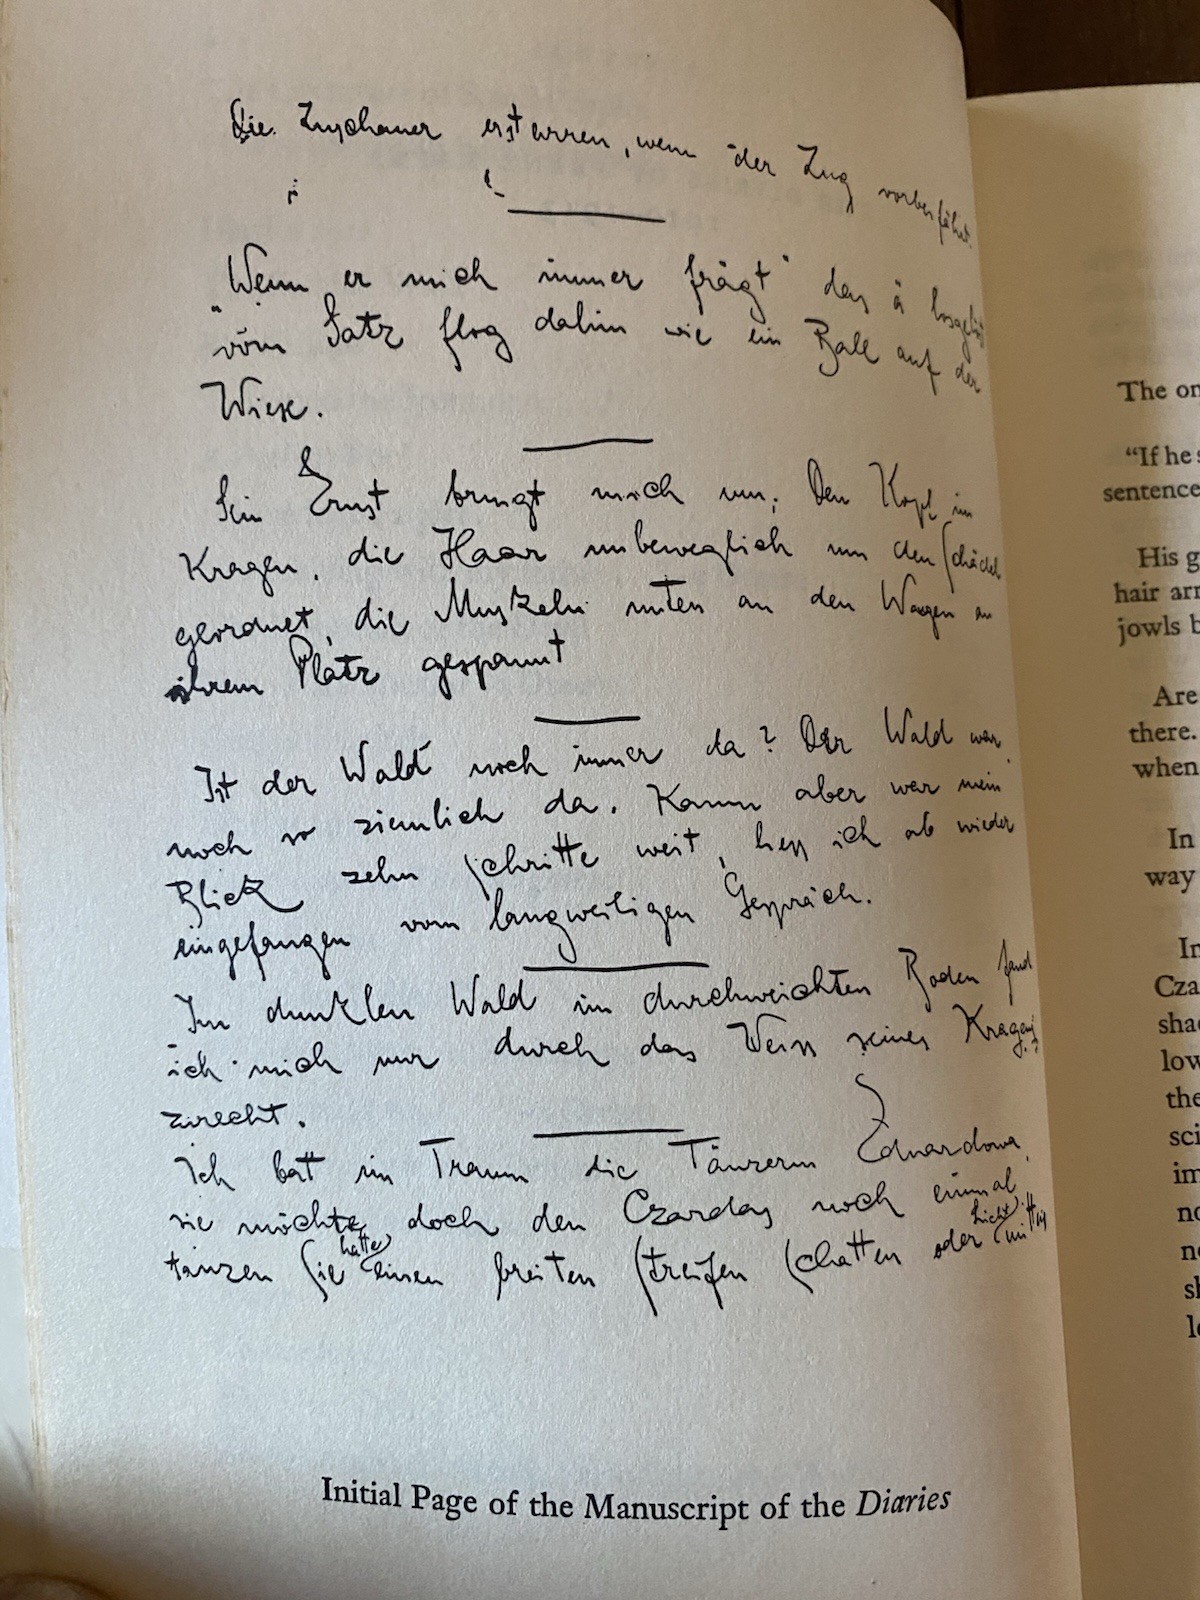 Die Zuschauer erstarren, wenn der Zug vorbeifährt.
"Wenn er mich immer frägt" das ä losgelöst
vom Satz flog dahin wie ein Ball auf der
Wiese.
Sein Ernst bringt mich um. Den Kopf im
Kragen, die Haare unbeweglich um den Schädel
geordnet, die Muskeln unten an den Wangen an
ihrem Platz gespannt
Ist der Wald noch immer da? Der Wald war
noch so ziemlich da. Kaum aber war mein
Blick zehn Schritte weit, liess ich ab wieder
eingefangen vom langweiligen Gespräch.
Im dunklen Wald im durchweichten Boden fand
ich mich nur durch das Weiss seines Kragens
zurecht.
Ich bat im Traum die Tänzerin Eduardowa,
sie möchte doch den Czardas noch einmal
tanzen Sie hatte einen breiten Streifen Schatten oder Licht mitten
Initial Page of the Manuscript of the Diaries
The on
"If he s
sentence
His g
hair arr
jowls b
Are
there.
when
In
way
In
Cza
shad
low
the
sci
im
no
ne
sh
le